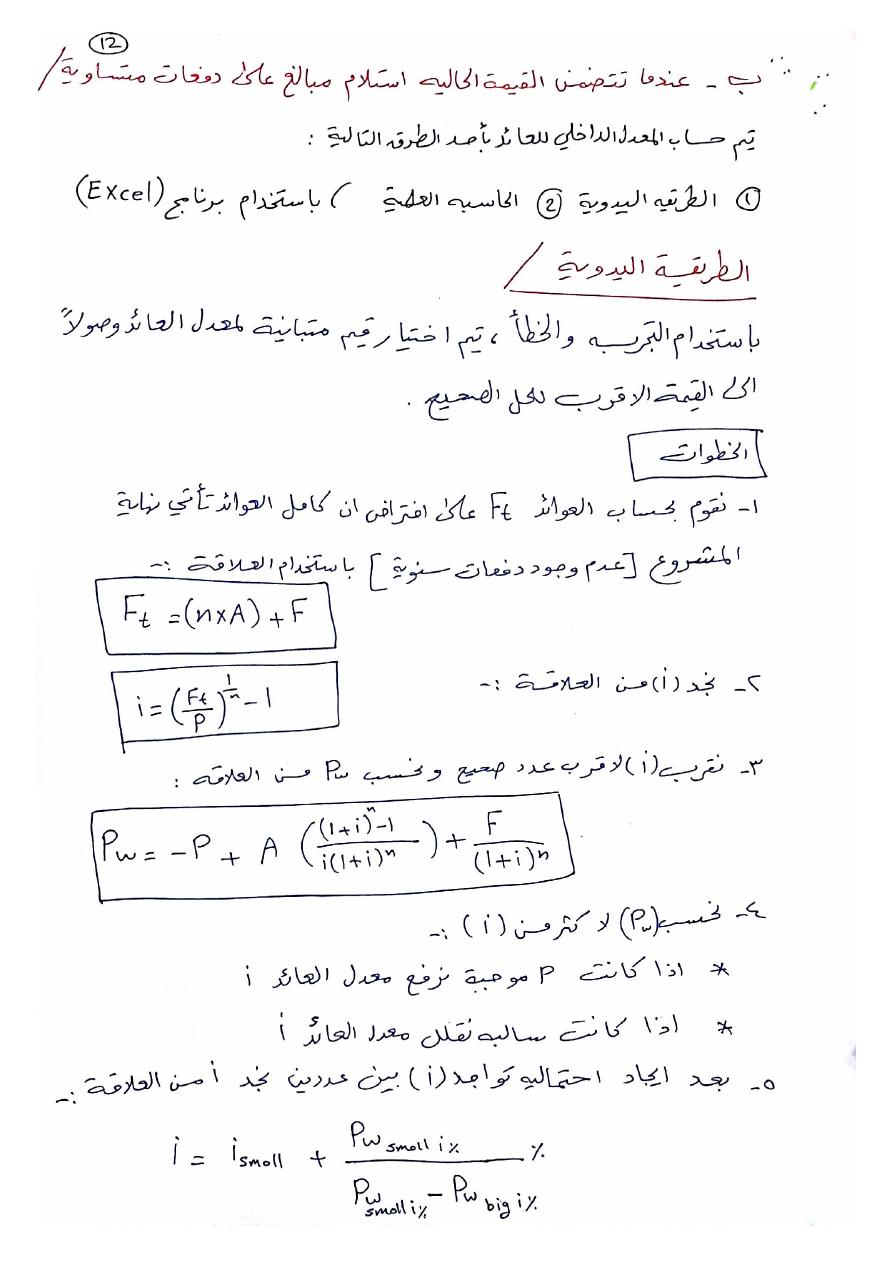 ١٢
ب - عندما تتضمن القيمة الحاليه استلام مبالغ على دفعات متساوية /
يتم حساب المعدل الداخلي للعائد بأحد الطرق التالية :
① الطريقه اليدوية ② الحاسبه العلمية ) باستخدام برنامج (Excel)
الطريقة اليدوية /
باستخدام التجربه والخطأ ، يتم اختيار قيم متباينة لمعدل العائد وصولاً
الى القيمة الاقرب للحل الصحيح .
الخطوات
١- نقوم بحساب العوائد Ft على افتراض ان كامل العوائد تأتي نهاية
المشروع [عدم وجود دفعات سنوية] باستخدام العلاقة :-
Ft = (n×A) + F
٢- نجد (i) من العلاقة :-
i = (Ft/P)^(1/n) - 1
٣- نقرب (i) لاقرب عدد صحيح ونحسب Pw من العلاقه :
Pw = -P + A (((1+i)^n - 1)/(i(1+i)^n)) + F/(1+i)^n
٤- نحسب (Pw) لاكثر من (i) :-
* اذا كانت P موجبة نرفع معدل العائد i
* اذا كانت سالبه نقلل معدل العائد i
٥- بعد ايجاد احتماليه تواجد (i) بين عددين نجد i من العلاقة :-
i = i small + (Pw small i%)/(Pw small i% - Pw big i%) %